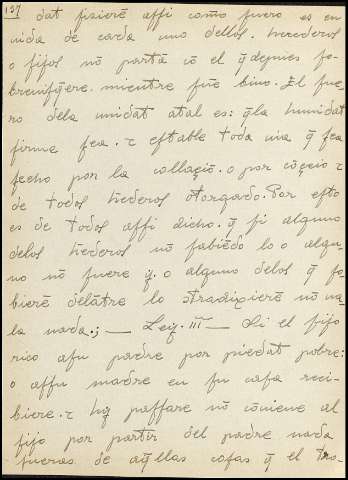 157
dat fizierē assi como fuero es en
uida de cada uno dellos. herederos
o fijos nō partā cō el q̄ depues so-
breuisq̄ere. mientre fue biuo. El fue-
ro dela unidat atal es: q̄ la hunidat
firme sea. τ estable toda uia q̄ sea
fecho por la collaçiō. o por cōçeio τ
de todos hederos otorgado. Por esto
es de todos assi dicho. q̄ si alguno
delos hederos nō sabiēdo lo o algu-
no nō fuere y. o alguno delos q̄ so-
bierē delātre lo stradixierē nō ua
la nada.;— Ley. III— Si el fijo
rico a su padre por piedat pobre:
o assu madre en su casa reci-
biere. τ hy passare nō cōuiene al
fijo por partir del padre nada
fueras de aq̄llas cosas q̄ el tro-